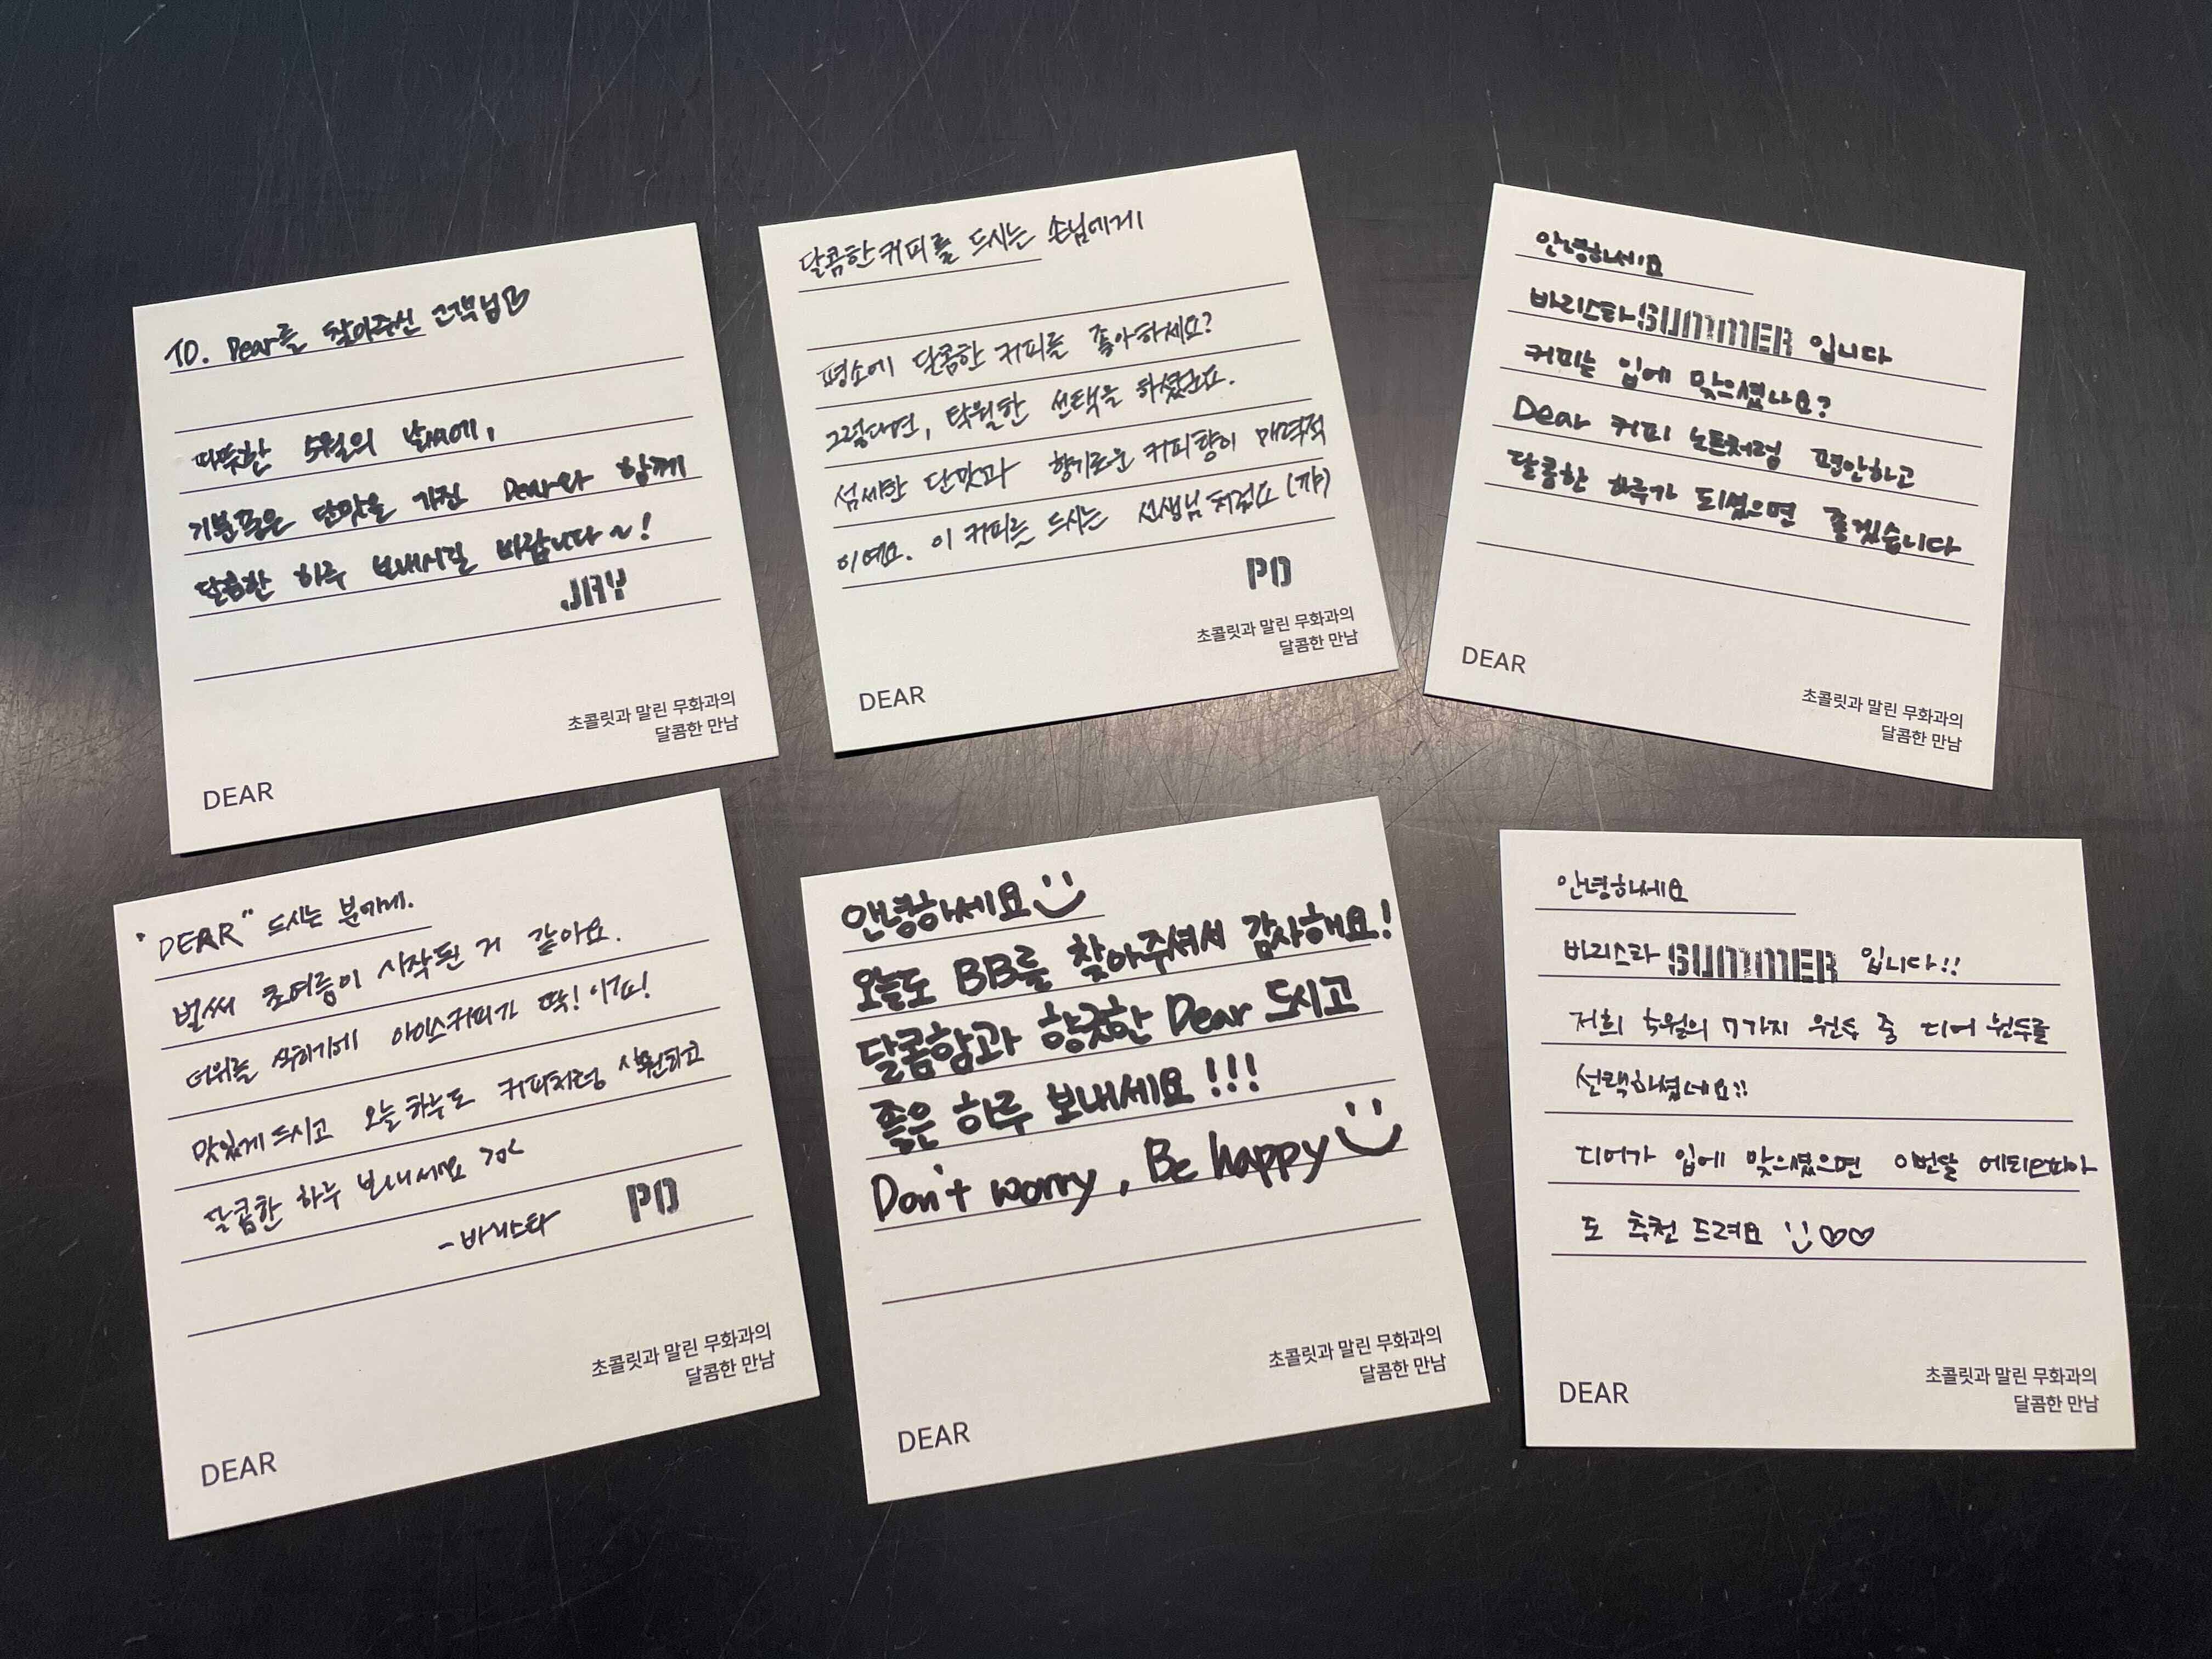 TO. Dear를 찾아주신 고객님♡
따뜻한 5월의 날씨에,
기분좋은 단맛을 가진 Dear와 함께
달콤한 하루 보내시길 바랍니다~!
JAY
초콜릿과 말린 무화과의
달콤한 만남
DEAR
달콤한 커피를 드시는 손님에게
평소에 달콤한 커피를 좋아하세요?
그렇다면, 탁월한 선택을 하셨군요.
섬세한 단맛과 향기로운 커피향이 매력적
이에요. 이 커피를 드시는 선생님처럼요 (꺄)
PO
초콜릿과 말린 무화과의
달콤한 만남
DEAR
안녕하세요
바리스타 SUMMER 입니다
커피는 입에 맞으셨나요?
Dear 커피 노트처럼 편안하고
달콤한 하루가 되셨으면 좋겠습니다
DEAR
초콜릿과 말린 무화과의
달콤한 만남
"DEAR" 드시는 분에게.
벌써 초여름이 시작된 거 같아요.
더위를 식히기에 아이스커피가 딱! 이죠!
맛있게 드시고 오늘 하루도 커피처럼 시원하고
달콤한 하루 보내세요 >o<
- 바리스타 PO
초콜릿과 말린 무화과의
달콤한 만남
DEAR
안녕하세요
오늘도 BB를 찾아주셔서 감사해요!
달콤함과 향긋한 Dear 드시고
좋은 하루 보내세요!!!
Don't worry, Be happy
초콜릿과 말린 무화과의
달콤한 만남
DEAR
안녕하세요
바리스타 SUMMER 입니다!!
저희 5월의 7가지 원두 중 디어 원두를
선택하셨네요!!
디어가 입에 맞으셨으면 이번달 에티오피아
도 추천 드려요 :) ♡♡
초콜릿과 말린 무화과의
달콤한 만남
DEAR